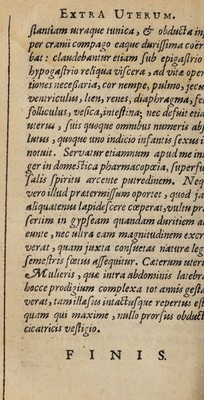 EXTRA UTERUM.
stantiam utraque tunica, & obducta in
per cranii compago eaque durissima coër
bat: claudebantur etiam sub epigastrio
hypogastrio reliqua viscera, ad vitæ oper
tiones necessaria, cor nempe, pulmo, jecu
ventriculus, lien, renes, diaphragma, fe
folliculus, vesica, intestina; nec defuit etia
uterus, suis quoque omnibus numeris ab
lutus, quoque uno indicio infantis sexus i
notuit. Servatur etiamnum apud me in
ger in domestica pharmacopœia, supersu
salis spiritu arcente putredinem. Neq
vero illud prætermissum oportet, quod ja
aliquatenus lapidescere cœperat, vultu pr
sertim in gypseam quandam duritiem a
eunte, nec ultra eam magnitudinem excr
verat, quam juxta consuetas naturæ leg
semestris fœtus assequitur. Cæterum uteri
Mulieris, quæ intra abdominis latebra
hocce prodigium complexa tot annis gesta
verat, tam illæsus intactusque repertus est
quam qui maxime, nullo prorsus obduct
cicatricis vestigio.
FINIS.